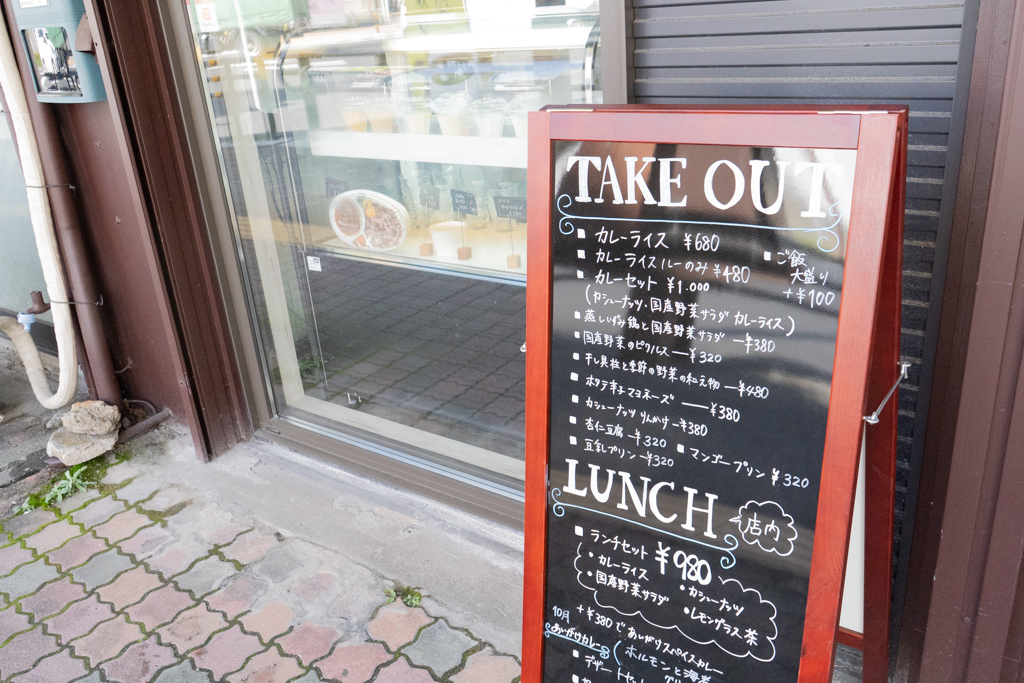 TAKE OUT
■ カレーライス ¥680
■ ご飯
大盛り
+¥100
■ カレーライスルーのみ ¥480
■ カレーセット ¥1.000
(カシューナッツ・国産野菜サラダ カレーライス)
■ 蒸し鶏と国産野菜サラダ —¥380
■ 国産野菜のピクルス —¥320
■ 干し貝柱と季節の野菜の和え物 —¥480
■ ホタテ辛子マヨネーズ —¥380
■ カシューナッツ りんかけ —¥380
■ 杏仁豆腐 —¥320
■ マンゴープリン ¥320
■ 豆乳プリン —¥320
LUNCH
店内
■ ランチセット ¥980
・カレーライス
・カシューナッツ
・国産野菜サラダ
・レモングラス茶
10月 +¥380で あいがけスペイスカレー
あいがけカレー (ホルモンと海老
■ デザートセット